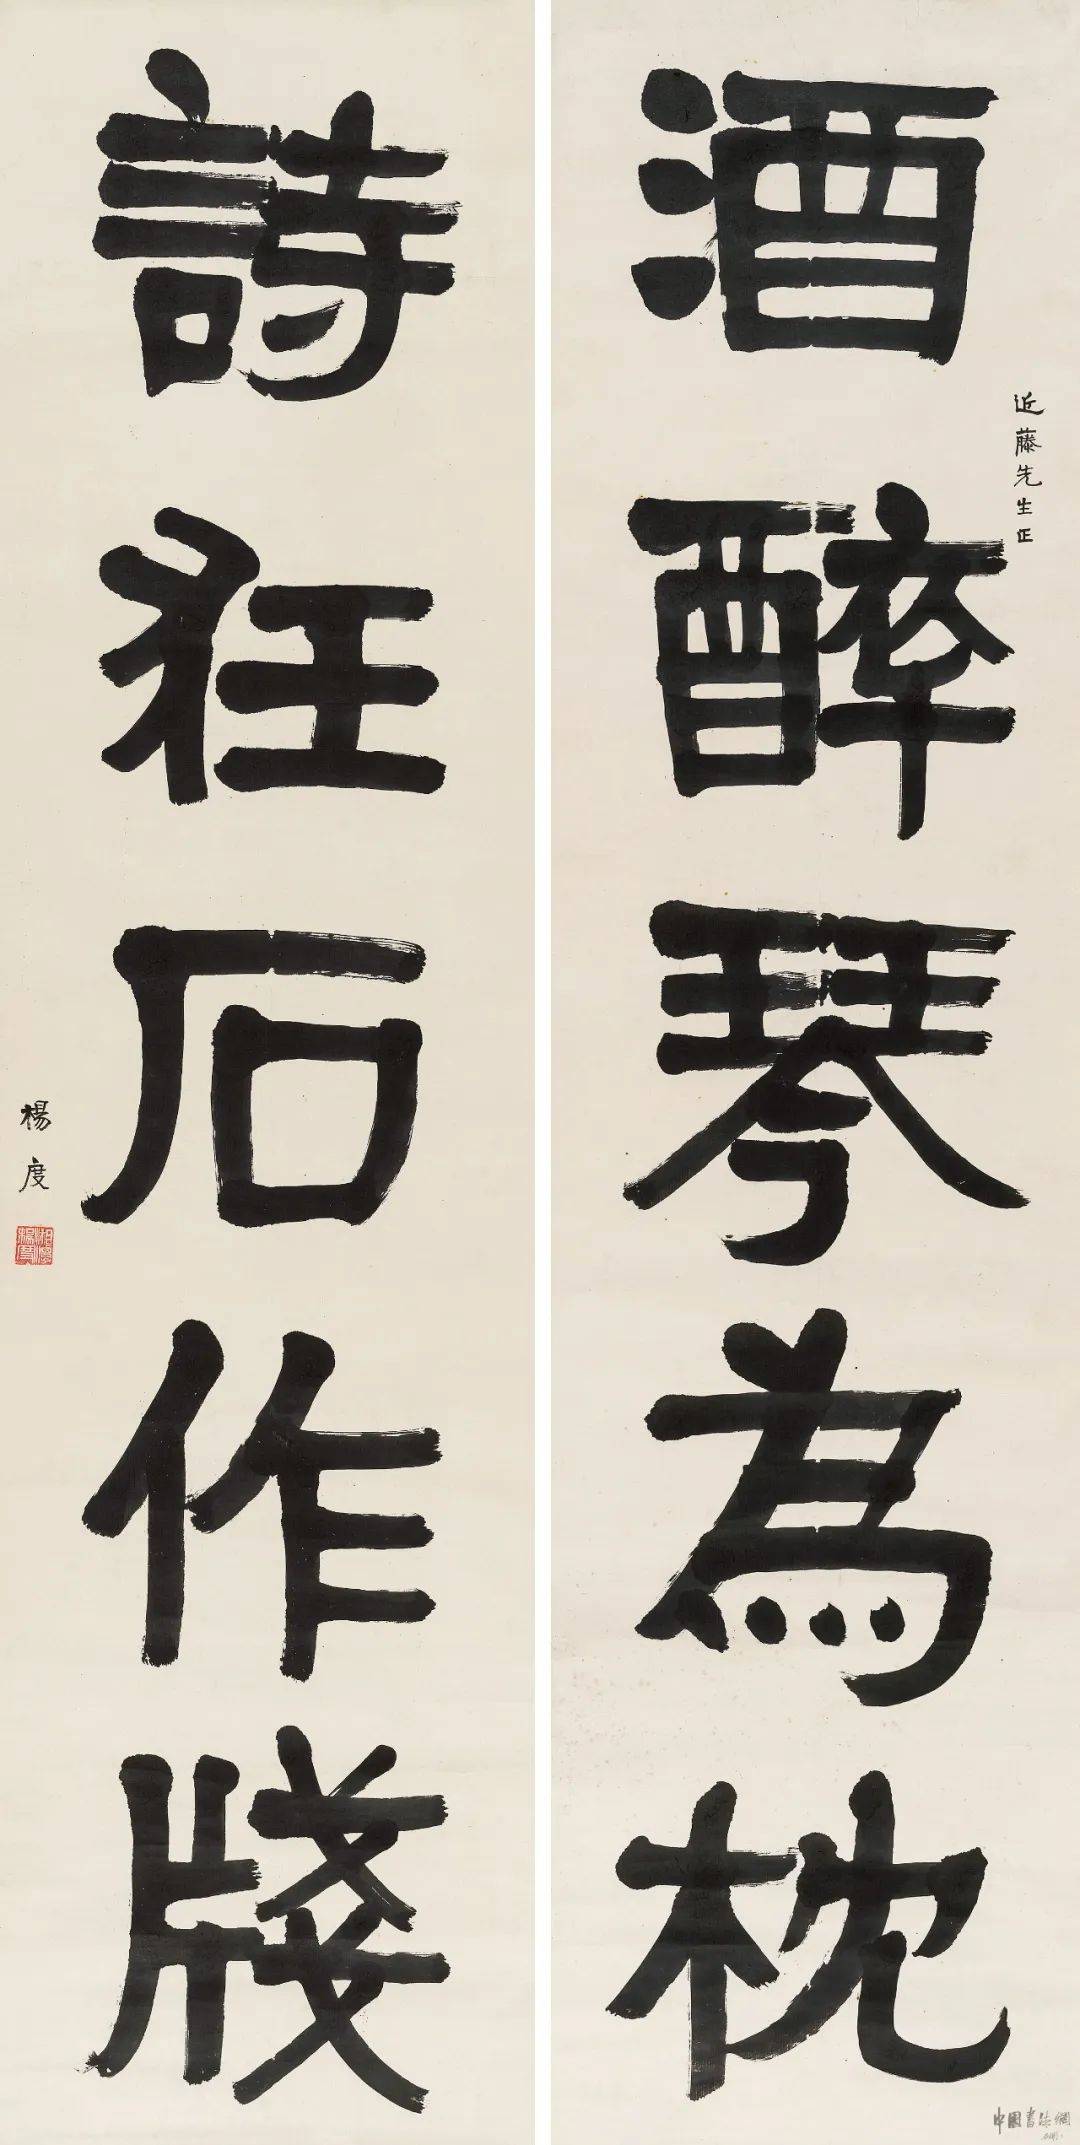 酒醉琴為枕
近藤先生正
詩狂石作牋
楊度
中國書法網